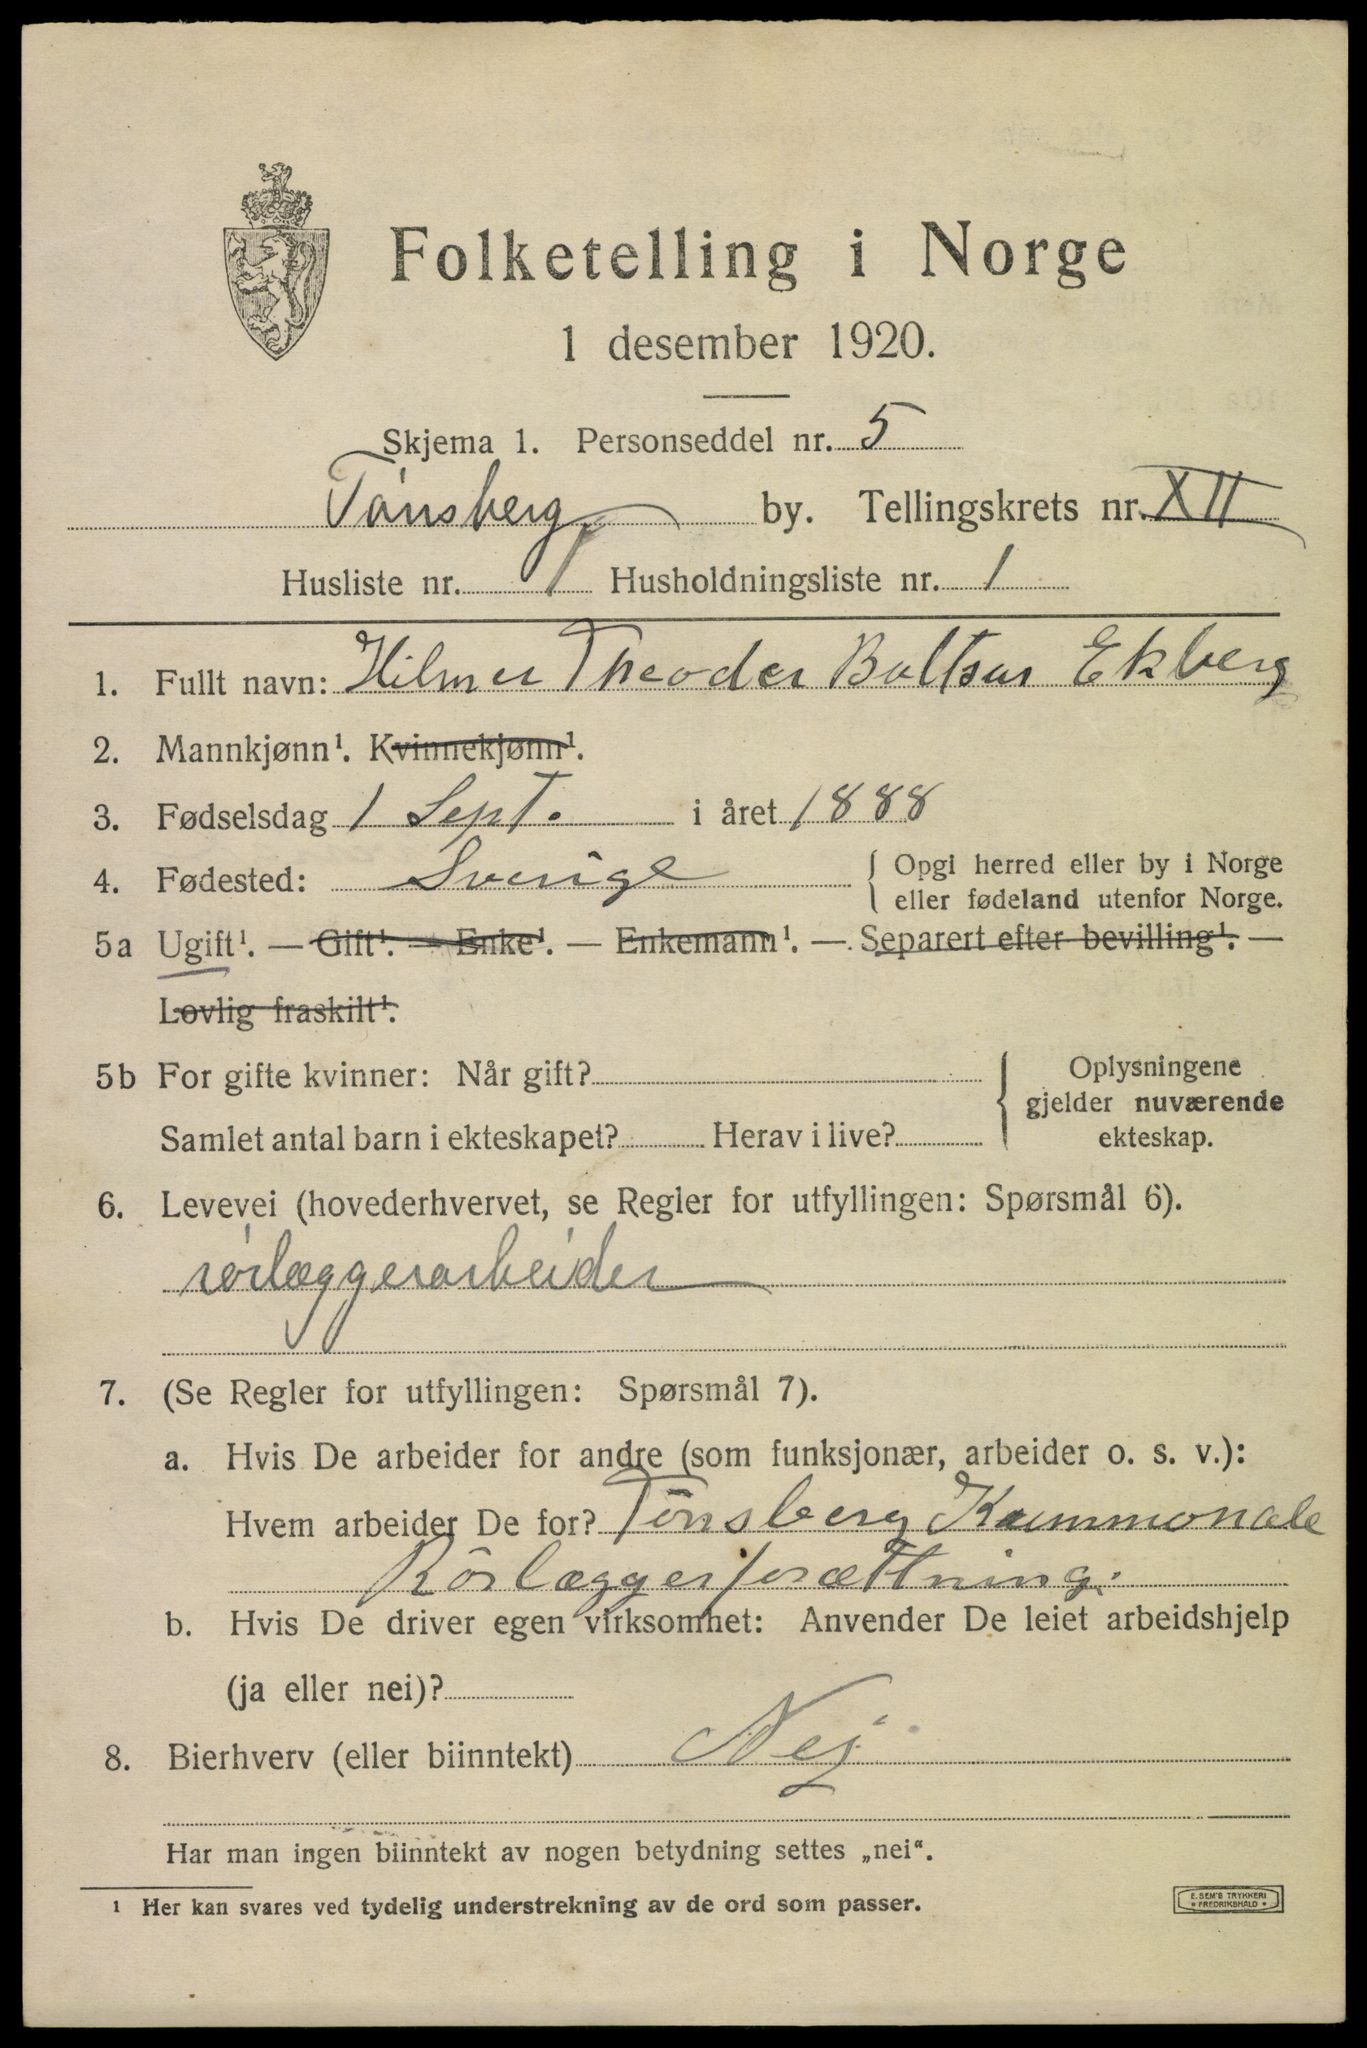 Folketelling i Norge
1 desember 1920.
Skjema 1. Personseddel nr. 5
Tønsberg by. Tellingskrets nr. XII
Husliste nr. 1 Husholdningsliste nr. 1
1. Fullt navn: Hilmer Theoder Baltsar Ekberg
2. Mannkjønn¹. Kvinnekjønn¹.
3. Fødselsdag 1 Sept. i året 1888
4. Fødested: Sverige { Opgi herred eller by i Norge
eller fødeland utenfor Norge.
5a Ugift¹. — Gift¹. — Enke¹. — Enkemann¹. — Separert efter bevilling¹. —
Lovlig fraskilt¹.
5b For gifte kvinner: Når gift? { Oplysningene
gjelder nuværende
Samlet antal barn i ekteskapet? Herav i live? ekteskap.
6. Levevei (hovederhvervet, se Regler for utfyllingen: Spørsmål 6).
rörlæggerarbeider
7. (Se Regler for utfyllingen: Spørsmål 7).
a. Hvis De arbeider for andre (som funksjonær, arbeider o. s. v.):
Hvem arbeider De for? Tönsberg Kummonale
Rörlæggerforættning.
b. Hvis De driver egen virksomhet: Anvender De leiet arbeidshjelp
(ja eller nei)?
8. Bierhverv (eller biinntekt) Nej
Har man ingen biinntekt av nogen betydning settes „nei“.
¹ Her kan svares ved tydelig understrekning av de ord som passer.
E. SEM'S TRYKKERI
* FREDRIKSHALD *